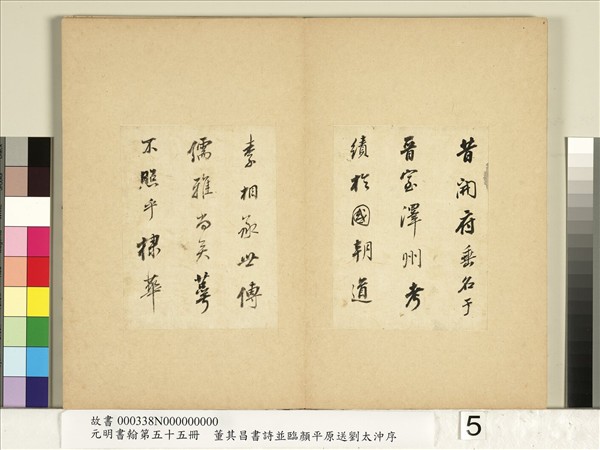 昔開府垂名于
晉室澤州考
績於國朝道
素相承世傳
儒雅尚矣萼
不照乎棣華
故書 000338N000000000
元明書翰第五十五冊　董其昌書詩並臨顏平原送劉太沖序
5